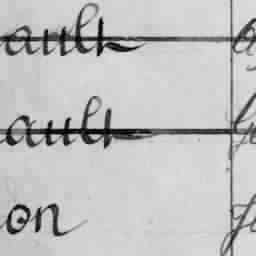 ault
ault
on